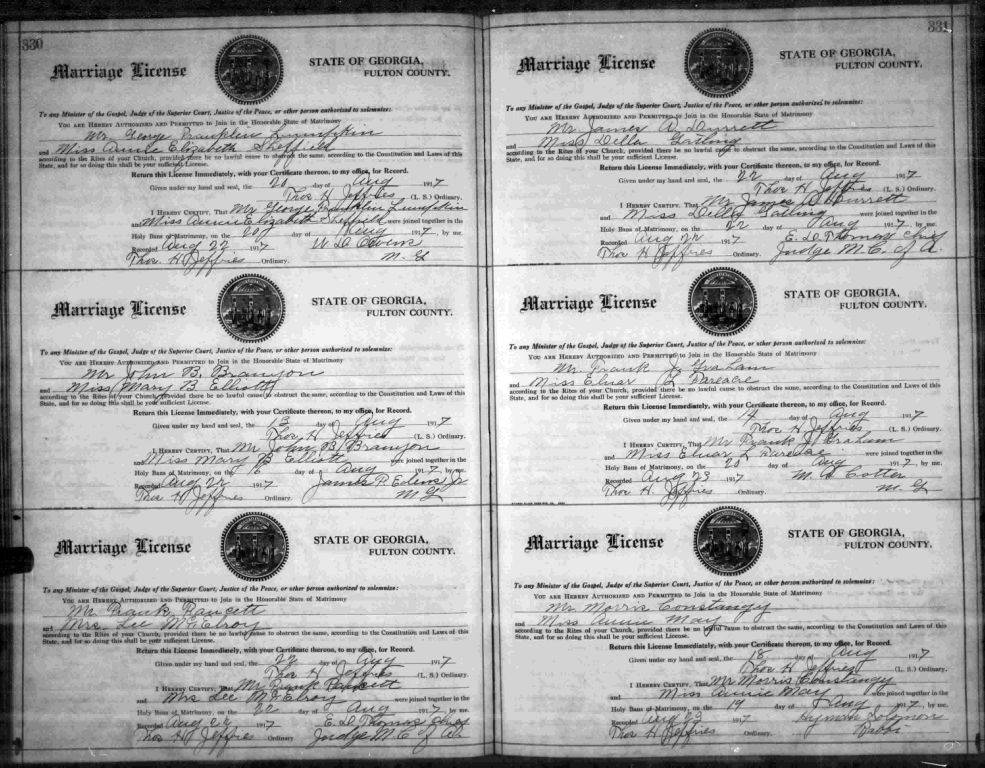 330
Marriage License
STATE OF GEORGIA,
FULTON COUNTY.
To any Minister of the Gospel, Judge of the Superior Court, Justice of the Peace, or other person authorized to solemnize:
YOU ARE HEREBY AUTHORIZED AND PERMITTED to Join in the Honorable State of Matrimony
Mr. George Franklin Lumpkin
and Miss Annie Elizabeth Sheffield
according to the Rites of your Church, provided there be no lawful cause to obstruct the same, according to the Constitution and Laws of this
State, and for so doing this shall be your sufficient License.
Return this License Immediately, with your Certificate thereon, to my office, for Record.
Given under my hand and seal, the 20 day of Aug 1917
Thos H Jeffries (L. S.) Ordinary.
I HEREBY CERTIFY, That Mr George Franklin Lumpkin
and Miss Annie Elizabeth Sheffield were joined together in the
Holy Bans of Matrimony, on the 20 day of Aug 1917, by me.
Recorded Aug 22 1917 W. D.
Thos H Jeffries Ordinary. M. G
Marriage License
STATE OF GEORGIA,
FULTON COUNTY.
To any Minister of the Gospel, Judge of the Superior Court, Justice of the Peace, or other person authorized to solemnize:
YOU ARE HEREBY AUTHORIZED AND PERMITTED to Join in the Honorable State of Matrimony
Mr John B. Branyon
and Miss Mary B Elliott
according to the Rites of your Church, provided there be no lawful cause to obstruct the same, according to the Constitution and Laws of this
State, and for so doing this shall be your sufficient License.
Return this License Immediately, with your Certificate thereon, to my office, for Record.
Given under my hand and seal, the 13 day of Aug 1917
Thos H Jeffries (L. S.) Ordinary.
I HEREBY CERTIFY, That Mr John B Branyon
and Miss Mary B Elliott were joined together in the
Holy Bans of Matrimony, on the 16 day of Aug 1917, by me.
Recorded Aug 22 1917 James P. Jr
Thos H Jeffries Ordinary. M G
Marriage License
STATE OF GEORGIA,
FULTON COUNTY.
To any Minister of the Gospel, Judge of the Superior Court, Justice of the Peace, or other person authorized to solemnize:
YOU ARE HEREBY AUTHORIZED AND PERMITTED to Join in the Honorable State of Matrimony
Mr Frank Faucett
and Mrs. Lee McElroy
according to the Rites of your Church, provided there be no lawful cause to obstruct the same, according to the Constitution and Laws of this
State, and for so doing this shall be your sufficient License.
Return this License Immediately, with your Certificate thereon, to my office, for Record.
Given under my hand and seal, the 22 day of Aug 1917
Thos H Jeffries (L. S.) Ordinary.
I HEREBY CERTIFY, That Mr Frank Faucett
and Mrs Lee McElroy were joined together in the
Holy Bans of Matrimony, on the 22 day of Aug 1917, by me.
Recorded Aug 22 1917 E. D. Thomas Chief
Thos H Jeffries Ordinary Judge M. C of A
331
Marriage License
STATE OF GEORGIA,
FULTON COUNTY.
To any Minister of the Gospel, Judge of the Superior Court, Justice of the Peace, or other person authorized to solemnize:
YOU ARE HEREBY AUTHORIZED AND PERMITTED to Join in the Honorable State of Matrimony
Mr James W Durrett
and Miss Della Gatling
according to the Rites of your Church, provided there be no lawful cause to obstruct the same, according to the Constitution and Laws of this
State, and for so doing this shall be your sufficient License.
Return this License Immediately, with your Certificate thereon, to my office, for Record.
Given under my hand and seal, the 22 day of Aug 1917
Thos H Jeffries (L. S.) Ordinary.
I HEREBY CERTIFY, That Mr James W Durrett
and Miss Della Gatling were joined together in the
Holy Bans of Matrimony, on the 22 day of Aug 1917, by me.
Recorded Aug 22 1917 E. D. Thomas Chief
Thos H Jeffries Ordinary. Judge M. C. of A.
Marriage License
STATE OF GEORGIA,
FULTON COUNTY.
To any Minister of the Gospel, Judge of the Superior Court, Justice of the Peace, or other person authorized to solemnize:
YOU ARE HEREBY AUTHORIZED AND PERMITTED to Join in the Honorable State of Matrimony
Mr. Frank J Graham
and Miss L
according to the Rites of your Church, provided there be no lawful cause to obstruct the same, according to the Constitution and Laws of this
State, and for so doing this shall be your sufficient License.
Return this License Immediately, with your Certificate thereon, to my office, for Record.
Given under my hand and seal, the 14 day of Aug 1917
Thos H Jeffries (L. S.) Ordinary.
I HEREBY CERTIFY, That Mr Frank J Graham
and Miss L were joined together in the
Holy Bans of Matrimony, on the 20 day of Aug 1917, by me.
Recorded Aug 23 1917 Cotter
Thos H Jeffries Ordinary. M. G
Marriage License
STATE OF GEORGIA,
FULTON COUNTY.
To any Minister of the Gospel, Judge of the Superior Court, Justice of the Peace, or other person authorized to solemnize:
YOU ARE HEREBY AUTHORIZED AND PERMITTED to Join in the Honorable State of Matrimony
Mr Morris Constangy
and Miss Annie May
according to the Rites of your Church, provided there be no lawful cause to obstruct the same, according to the Constitution and Laws of this
State, and for so doing this shall be your sufficient License.
Return this License Immediately, with your Certificate thereon, to my office, for Record.
Given under my hand and seal, the 18 day of Aug 1917
Thos H Jeffries (L. S.) Ordinary.
I HEREBY CERTIFY, That Mr Morris Constangy
and Miss Annie May were joined together in the
Holy Bans of Matrimony, on the 19 day of Aug 1917, by me.
Recorded Aug 23 1917 Hyman Solomon
Thos H Jeffries Ordinary. Rabbi